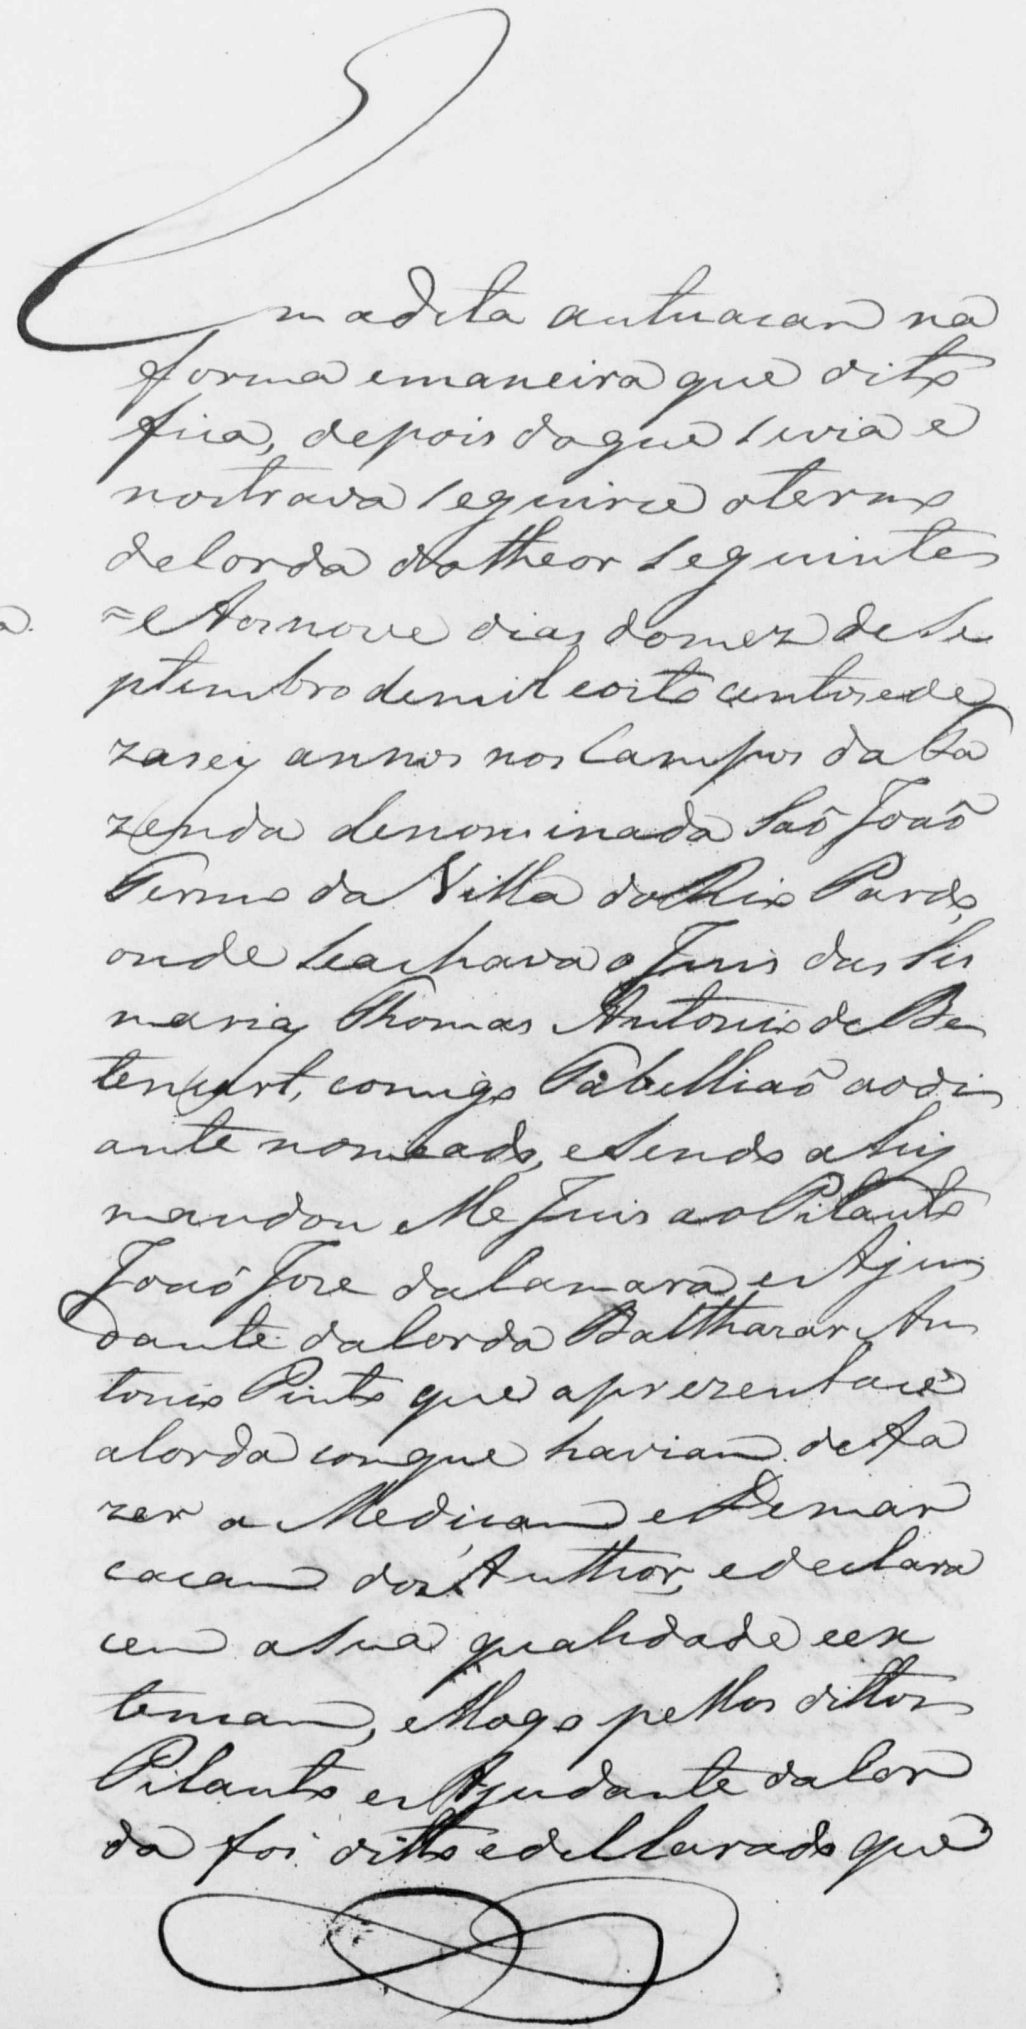 Em a dita autuacam na
forma e maneira que dito
fica, depois do que se via e
mostrava seguirce o termo
de Corda do theor seguinte
= Aos nove dias do mez de Se
ptembro de mil e oito centos e de
zaseis annos nos Campos da Fa
zenda denominada Saõ Joaõ
Termo da Villa do Rio Pardo,
onde se achava o Juis das Sis
marias Thomas Antonio de Be
tencurt, comigo Tabelliaõ ao di
ante nomeado, e sendo ahy
mandou elle Juis ao Piloto
Joaõ Joze da Camara e Aju
dante da Corda Balthazar An
tonio Pinto que aprezentace
a Corda com que haviam de fa
zer a Medicam e Demar
cacam dos Author, e declara
cem a sua qualidade e ex
tencam, e logo pellos dittos
Piloto e Ajudante da Cor
da foi ditto e decllarado que
a.